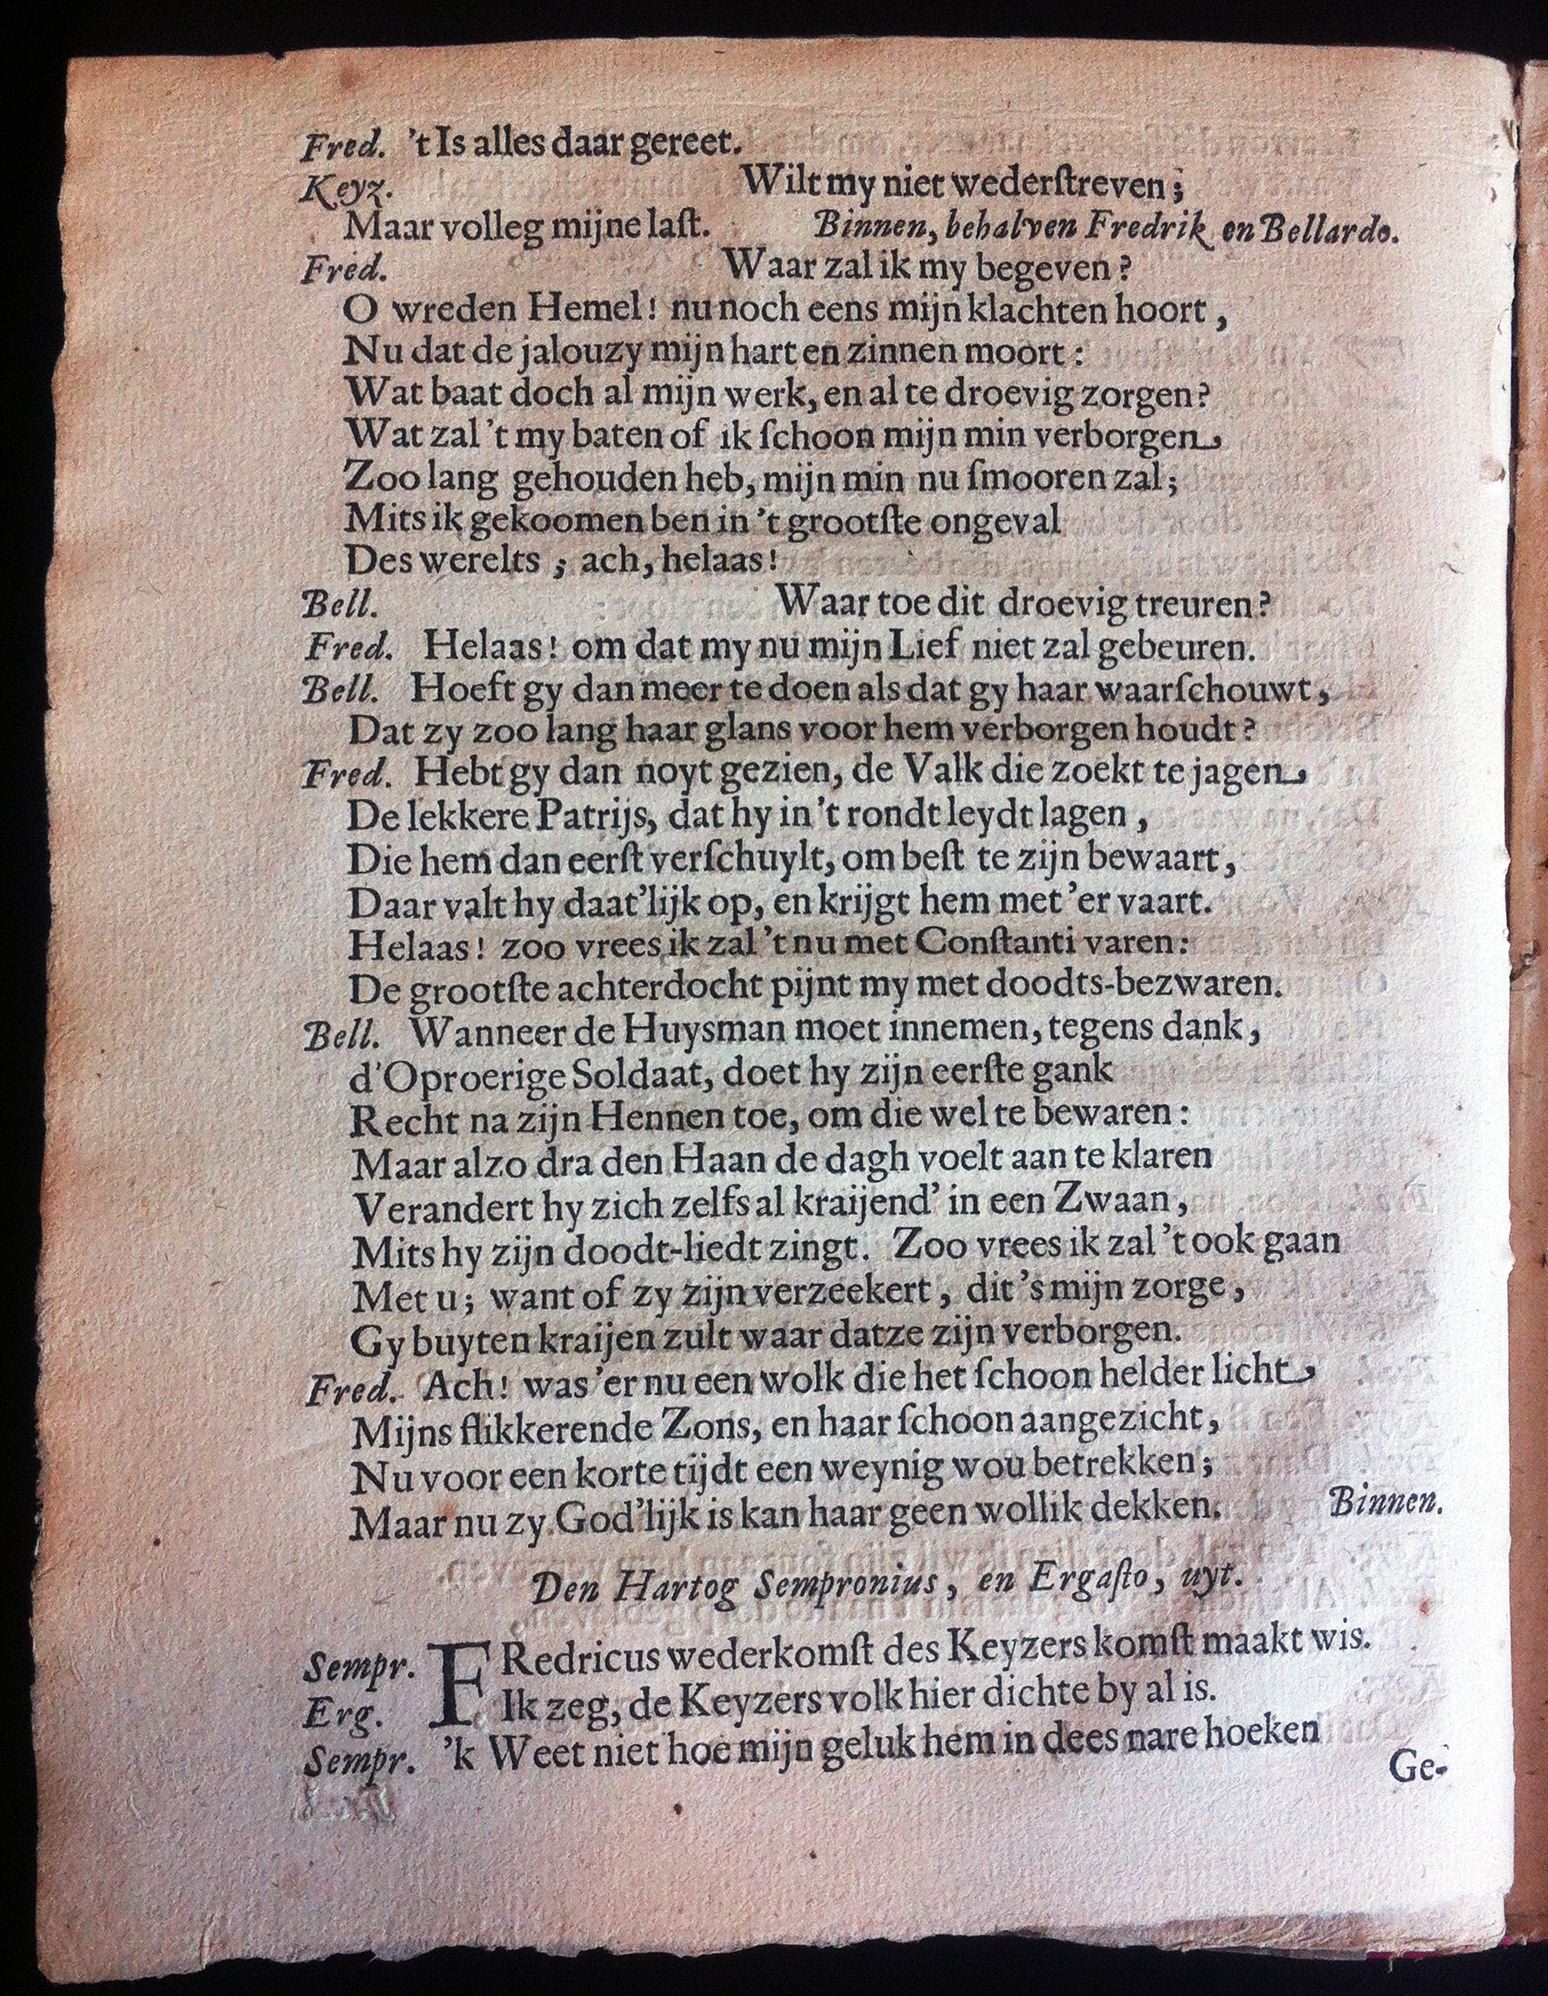 Fred. 't Is alles daar gereet.
Keyz. Wilt my niet wederſtreven;
Maar volleg mijne laſt. Binnen, behalven Fredrik en Bellardo.
Fred. Waar zal ik my begeven?
O wreden Hemel! nu noch eens mijn klachten hoort,
Nu dat de jalouzy mijn hart en zinnen moort:
Wat baat doch al mijn werk, en al te droevig zorgen?
Wat zal 't my baten of ik ſchoon mijn min verborgen
Zoo lang gehouden heb, mijn min nu ſmooren zal;
Mits ik gekoomen ben in 't grootſte ongeval
Des werelts; ach, helaas!
Bell. Waar toe dit droevig treuren?
Fred. Helaas! om dat my nu mijn Lief niet zal gebeuren.
Bell. Hoeft gy dan meer te doen als dat gy haar waarſchouwt,
Dat zy zoo lang haar glans voor hem verborgen houdt?
Fred. Hebt gy dan noyt gezien, de Valk die zoekt te jagen
De lekkere Patrijs, dat hy in 't rondt leydt lagen,
Die hem dan eerſt verſchuylt, om beſt te zijn bewaart,
Daar valt hy daat'lijk op, en krijgt hem met 'er vaart.
Helaas! zoo vrees ik zal 't nu met Conſtanti varen:
De grootſte achterdocht pijnt my met doodts-bezwaren.
Bell. Wanneer de Huysman moet innemen, tegens dank,
d'Oproerige Soldaat, doet hy zijn eerſte gank
Recht na zijn Hennen toe, om die wel te bewaren:
Maar alzo dra den Haan de dagh voelt aan te klaren
Verandert hy zich zelfs al kraijend' in een Zwaan,
Mits hy zijn doodt-liedt zingt. Zoo vrees ik zal 't ook gaan
Met u; want of zy zijn verzeekert, dit 's mijn zorge,
Gy buyten kraijen zult waar datze zijn verborgen.
Fred. Ach! was 'er nu een wolk die het ſchoon helder licht
Mijns flikkerende Zons, en haar ſchoon aangezicht,
Nu voor een korte tijdt een weynig wou betrekken;
Maar nu zy God'lijk is kan haar geen wollik dekken. Binnen.
Den Hartog Sempronius, en Ergaſto, uyt.
Sempr. FRedricus wederkomſt des Keyzers komſt maakt wis.
Erg. Ik zeg, de Keyzers volk hier dichte by al is.
Sempr. 'k Weet niet hoe mijn geluk hem in dees nare hoeken
Ge-